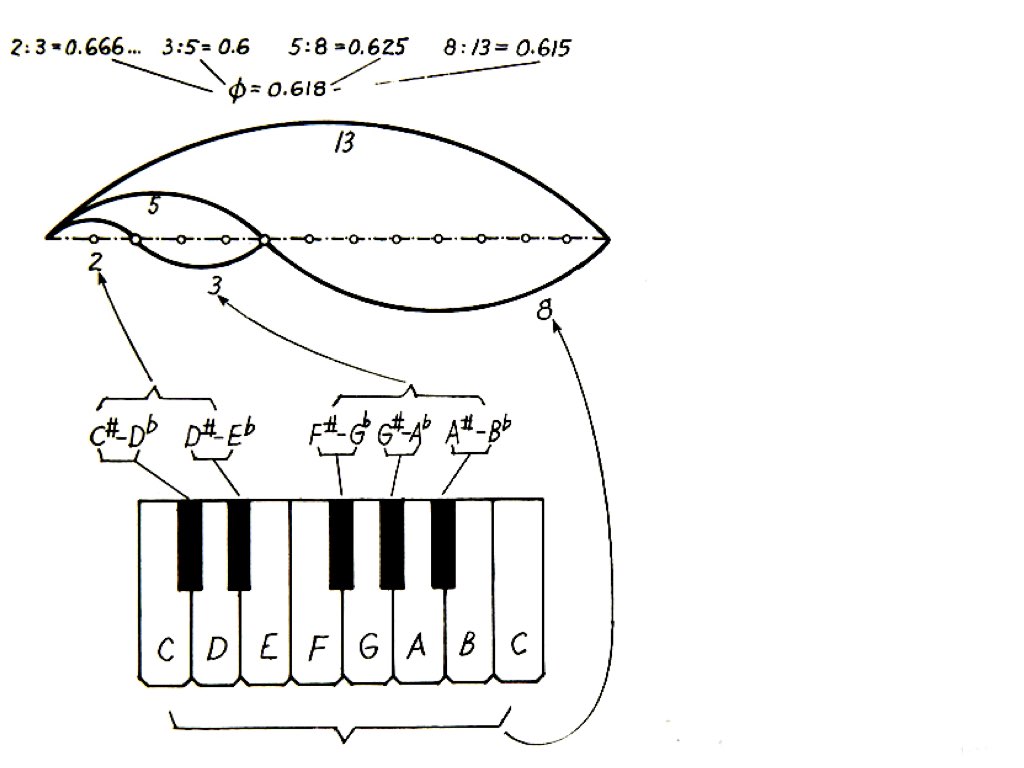 2:3=0.666... 3:5=0.6 5:8=0.625 8:13=0.615
ϕ=0.618-
13
5
2
3
8
C#-Db D#-Eb F#-Gb G#-Ab A#-Bb
C D E F G A B C